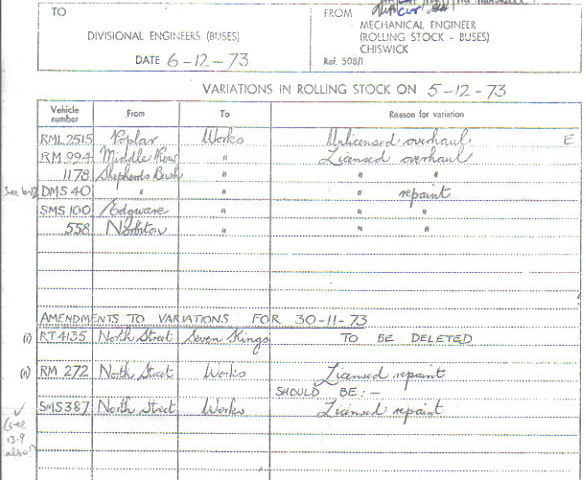 TO
DIVISIONAL ENGINEERS (BUSES)
DATE 6-12-73
FROM
MECHANICAL ENGINEER
(ROLLING STOCK - BUSES)
CHISWICK
Ref. 508/1
VARIATIONS IN ROLLING STOCK ON 5-12-73
Vehicle number From To Reason for variation
RML 2515 Poplar Works Unlicensed overhaul E
RM 994 Middle Row " Licensed overhaul
1178 Shepherds Bush " " "
See DMS 40 " " " repaint
SMS 100 Edgware " " "
558 Norbiton " " "
AMENDMENTS TO VARIATIONS FOR 30-11-73
(i) RT 4135 North Street Seven Kings TO BE DELETED
(ii) RM 272 North Street Works Licensed repaint
SHOULD BE:-
✓ SMS 387 North Street Works Licensed repaint
(see
13-9
also!)